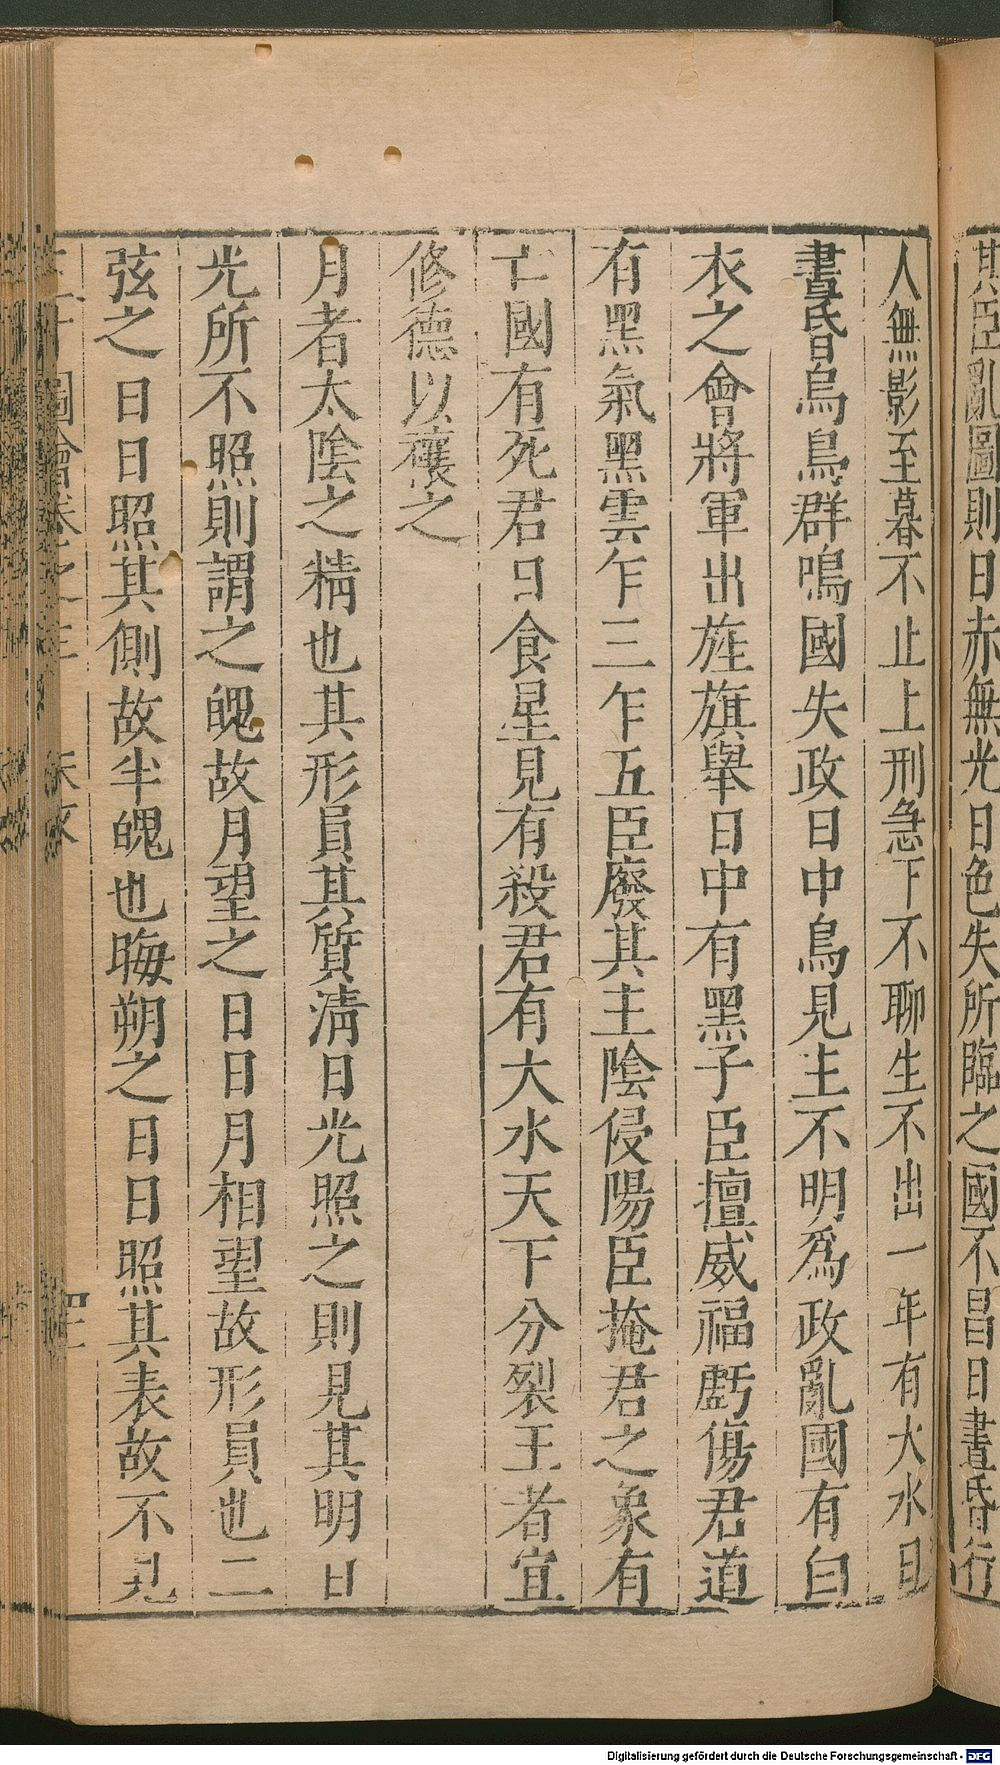 其臣亂圖則日赤無光日色失所臨之國不昌日晝昏行
人無影至暮不止上刑急下不聊生不出一年有大水日
晝昏烏鳥群鳴國失政日中烏見主不明為政亂國有白
衣之會將軍出旌旗舉日中有黑子臣擅威福虧傷君道
有黑氣黑雲乍三乍五臣廢其主陰侵陽臣掩君之象有
亡國有死君日食星見有殺君有大水天下分裂王者宜
修德以禳之
月者太陰之精也其形員其質淸日光照之則見其明日
光所不照則謂之魄故月望之日日月相望故形員也二
弦之日日照其側故半魄也晦朔之日日照其表故不見
圖會卷之
Digitalisierung gefördert durch die Deutsche Forschungsgemeinschaft - DFG